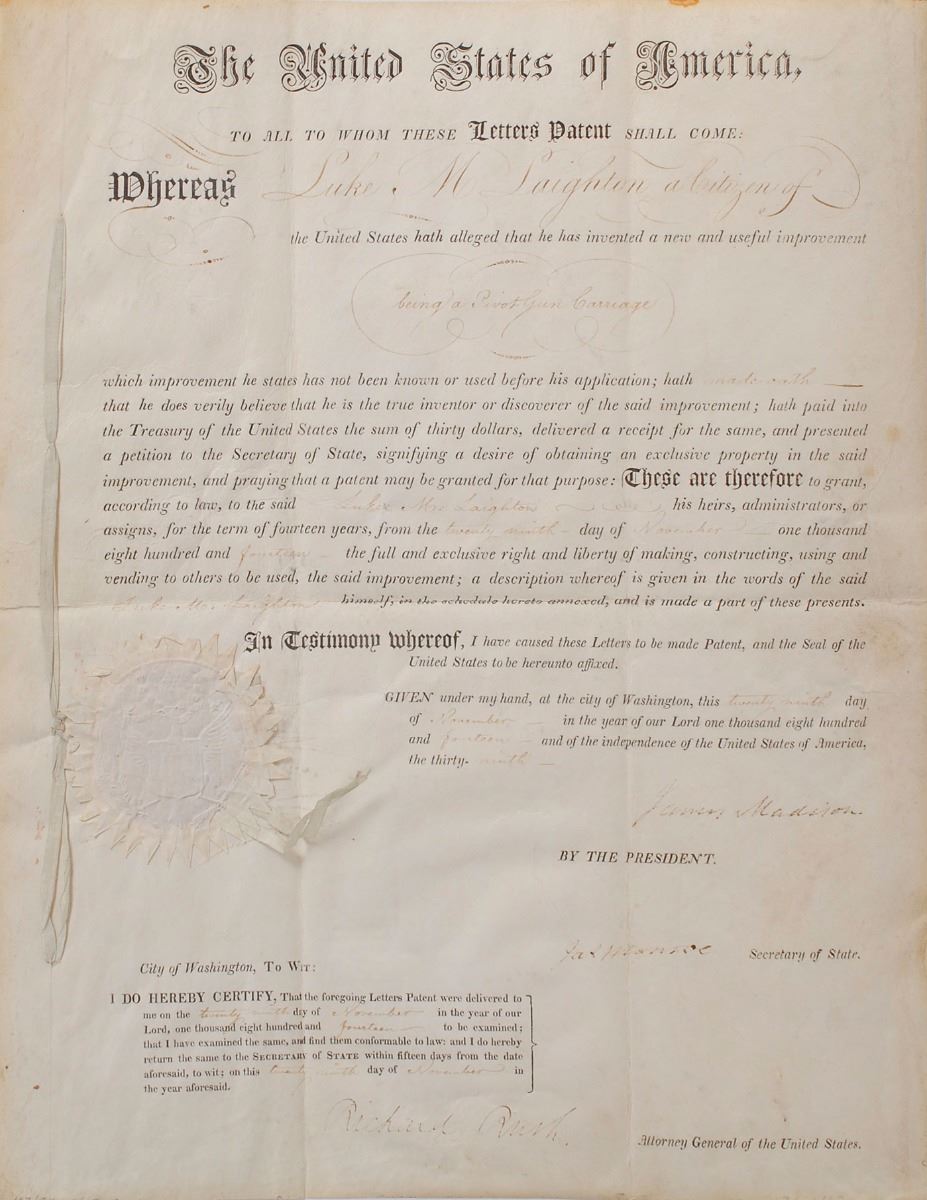 The United States of America,
TO ALL TO WHOM THESE Letters Patent SHALL COME:
Whereas Luke M Laighton a Citizen of
the United States hath alleged that he has invented a new and useful improvement
being a Pivot Gun Carriage
which improvement he states has not been known or used before his application; hath made oath
that he does verily believe that he is the true inventor or discoverer of the said improvement; hath paid into
the Treasury of the United States the sum of thirty dollars, delivered a receipt for the same, and presented
a petition to the Secretary of State, signifying a desire of obtaining an exclusive property in the said
improvement, and praying that a patent may be granted for that purpose: These are therefore to grant,
according to law, to the said Luke M. Laighton his heirs, administrators, or
assigns, for the term of fourteen years, from the twenty ninth day of November one thousand
eight hundred and fourteen the full and exclusive right and liberty of making, constructing, using and
vending to others to be used, the said improvement; a description whereof is given in the words of the said
Luke M. Laighton himself, in the schedule hereto annexed, and is made a part of these presents.
In Testimony whereof, I have caused these Letters to be made Patent, and the Seal of the
United States to be hereunto affixed.
GIVEN under my hand, at the city of Washington, this twenty ninth day
of November in the year of our Lord one thousand eight hundred
and fourteen and of the independence of the United States of America,
the thirty- ninth
James Madison.
BY THE PRESIDENT.
Jas Monroe Secretary of State.
City of Washington, TO WIT:
I DO HEREBY CERTIFY, That the foregoing Letters Patent were delivered to
me on the twenty ninth day of November in the year of our
Lord, one thousand eight hundred and fourteen to be examined;
that I have examined the same, and find them conformable to law: and I do hereby
return the same to the SECRETARY OF STATE within fifteen days from the date
aforesaid, to wit; on this twenty ninth day of November in
the year aforesaid.
Richard Rush.
Attorney General of the United States.